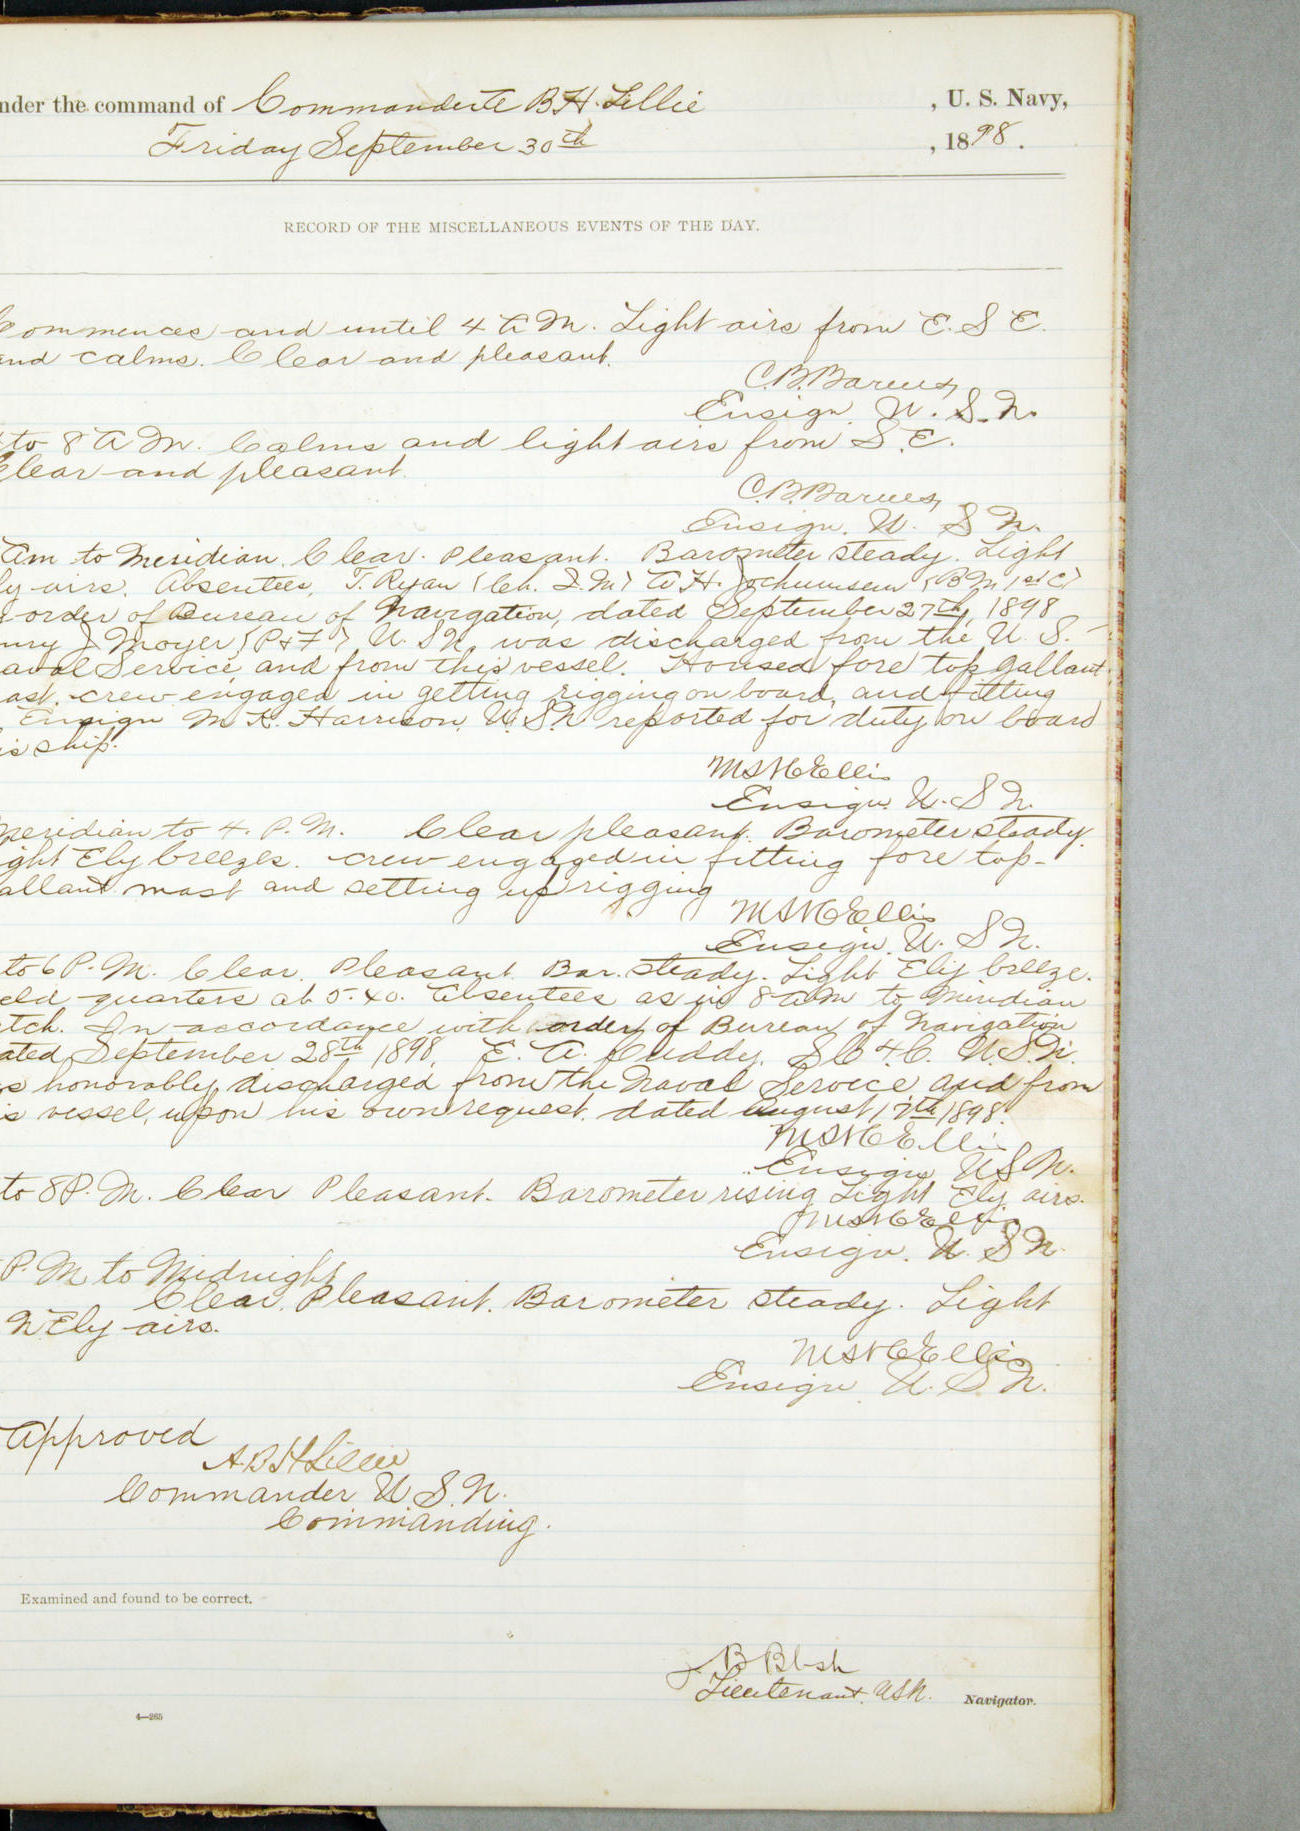 nder the command of Commander B.H. Lillie , U. S. Navy,
Friday September 30th , 1898.
RECORD OF THE MISCELLANEOUS EVENTS OF THE DAY.
Commences and until 4 A M. Light airs from E. S E.
and calms. Clear and pleasant.
C.B. Barnes,
Ensign U. S. N.
to 8 A M. Calms and light airs from S.E.
Clear and pleasant.
C.B. Barnes,
Ensign U. S N.
Am to Meridian. Clear. Pleasant. Barometer steady. Light
ly airs. Absentees, T. Ryan (Ch. G. M) A. H. Jochumsem (B M 1st C)
order of Bureau of Navigation, dated September 27th, 1898
nry J Moyer (P & F) U. S N was discharged from the U. S.
aval Service, and from this vessel. Housed fore top gallant
ast. crew engaged in getting rigging on board, and fitting
Ensign M. K. Harrison, U. S. N reported for duty on board
is ship.
Ensign U. S N.
Meridian to 4. P. M. Clear pleasant. Barometer steady.
ight Ely breezes. crew engaged in fitting fore top-
allant mast and setting up rigging
Ensign U. S N.
to 6 P. M. Clear. Pleasant. Bar. steady. Light Ely breeze.
eld quarters at 5.40. Absentees as in 8 A M to Miridian
tch. In accordance with order of Bureau of Navigation
ated September 28th 1898, E. A. Cuddy, S C 4 C. U. S. N.
s honorably discharged from the Naval Service, and from
is vessel, upon his own request, dated August 17th 1898.
Ensign U S N.
to 8 P. M. Clear Pleasant. Barometer rising Light Ely airs.
Ensign. U. S N
P. M to Midnight
Clear. Pleasant. Barometer steady. Light
N Ely airs.
Ensign U. S N.
Approved
A. B H Lillie
Commander U. S. N.
Commanding.
Examined and found to be correct.
Lieutenant, USN. Navigator.
4—265